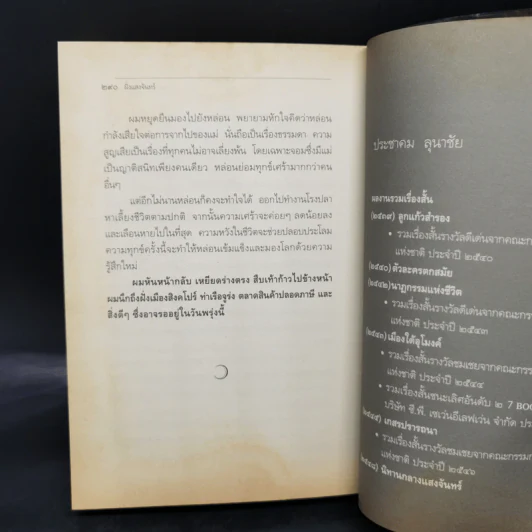 ๒๘๐ ฝั่งแสงจันทร์
ผมหยุดยืนมองไปยังหล่อน พยายามหักใจคิดว่าหล่อน
กำลังเสียใจต่อการจากไปของแม่ นั่นถือเป็นเรื่องธรรมดา ความ
สูญเสียเป็นเรื่องที่ทุกคนไม่อาจเลี่ยงพ้น โดยเฉพาะจอมซึ่งมีแม่
เป็นญาติสนิทเพียงคนเดียว หล่อนย่อมทุกข์เศร้ามากกว่าคน
อื่นๆ
แต่อีกไม่นานหล่อนก็คงจะทำใจได้ ออกไปทำงานโรงปลา
หาเลี้ยงชีวิตตามปกติ จากนั้นความเศร้าจะค่อยๆ ลดน้อยลง
และเลือนหายไปในที่สุด ความหวังในชีวิตจะช่วยปลอบประโลม
ความทุกข์ครั้งนี้จะทำให้หล่อนเข้มแข็งและมองโลกด้วยความ
รู้สึกใหม่
ผมหันหน้ากลับ เหยียดร่างตรง สืบเท้าก้าวไปข้างหน้า
ผมนึกถึงฝั่งเมืองสิงคโปร์ ท่าเรือจูร่ง ตลาดสินค้าปลอดภาษี และ
สิ่งดีๆ ซึ่งอาจรออยู่ในวันพรุ่งนี้
ประชาคม ลุนาชัย
ผลงานรวมเรื่องสั้น
(๒๕๓๙) ลูกแก้วสำรอง
• รวมเรื่องสั้นรางวัลดีเด่นจากคณะกร
แห่งชาติ ประจำปี ๒๕๔๐
(๒๕๔๐) ตัวละครตกสมัย
(๒๕๔๒) นาฏกรรมแห่งชีวิต
• รวมเรื่องสั้นรางวัลดีเด่นจากคณะกรรม
แห่งชาติ ประจำปี ๒๕๔๓
(๒๕๔๓) เมืองใต้อุโมงค์
• รวมเรื่องสั้นรางวัลชมเชยจากคณะกรรม
แห่งชาติ ประจำปี ๒๕๔๔
• รวมเรื่องสั้นชนะเลิศอันดับ ๒ 7 BOO
บริษัท ซี.พี. เซเว่นอีเลฟเว่น จำกัด ประ
(๒๕๔๕) เกสรปรารถนา
• รวมเรื่องสั้นรางวัลชมเชยจากคณะกรรมก
แห่งชาติ ประจำปี ๒๕๔๖
นิทานกลางแสงจันทร์